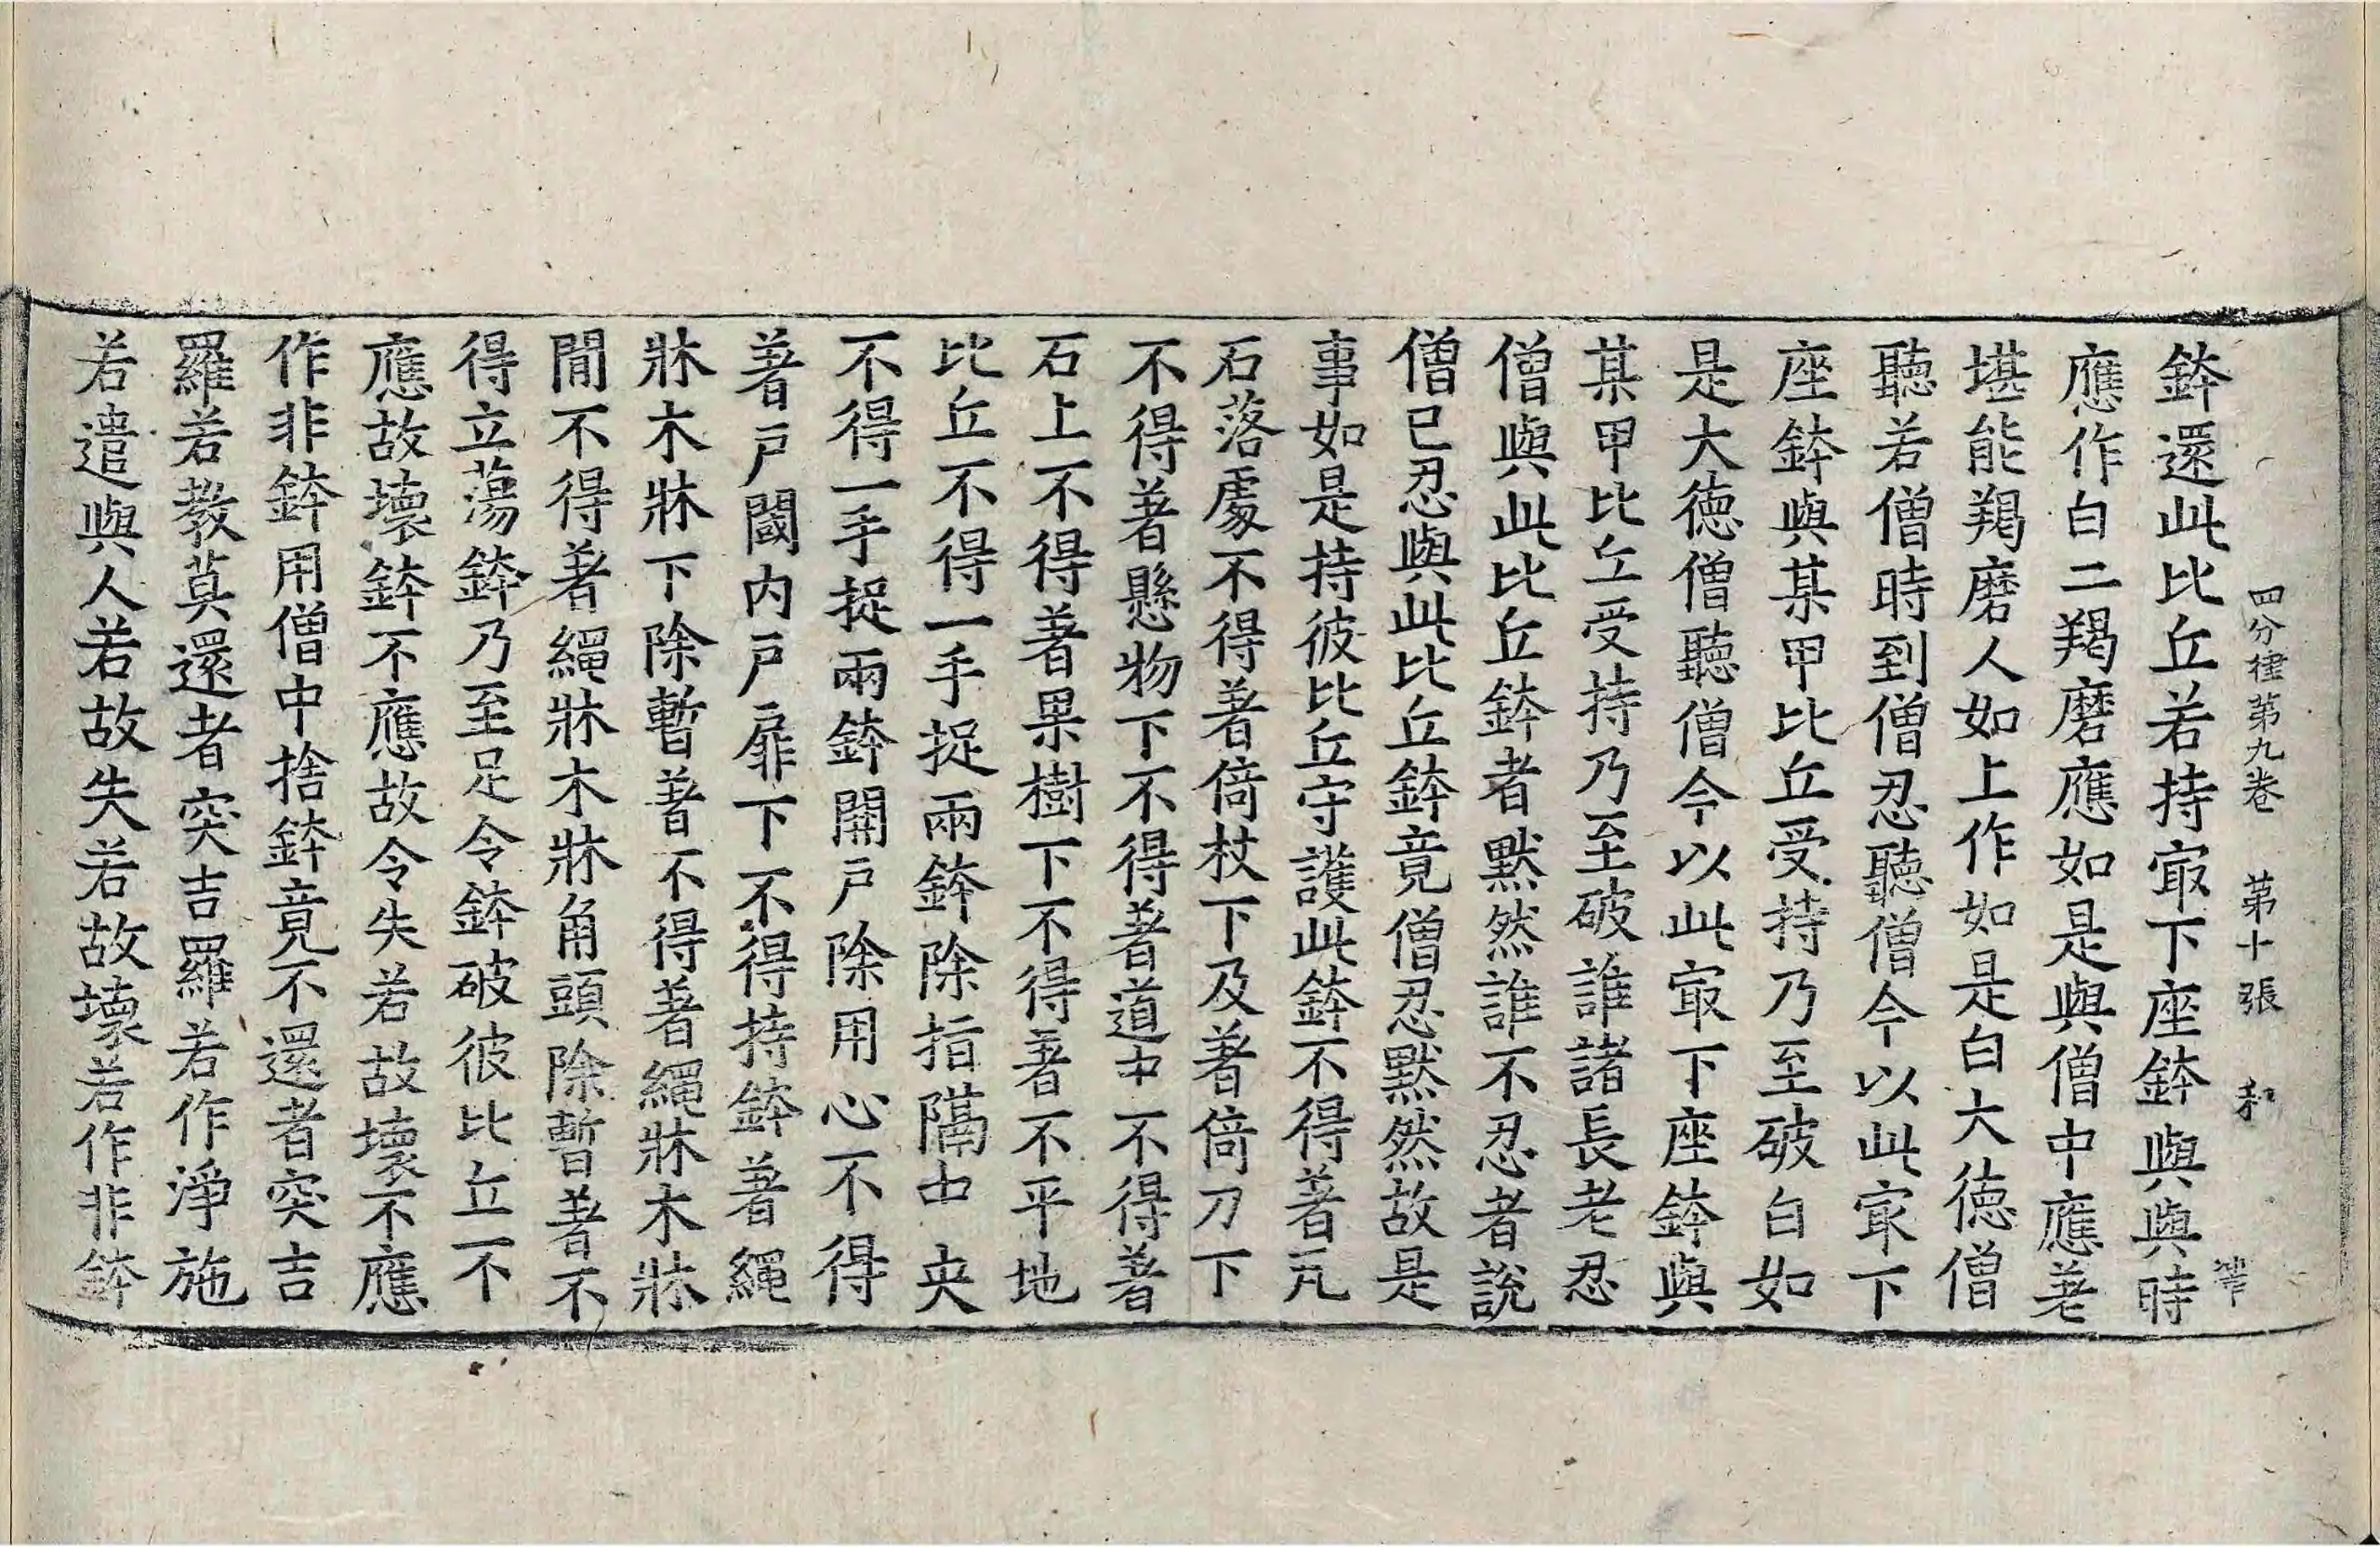 四分律第九卷 第十張 和
鉢還此比丘若持㝡下座鉢與與時
應作白二羯磨應如是與僧中應差
堪能羯磨人如上作如是白大德僧
聽若僧時到僧忍聽僧今以此㝡下
座鉢與某甲比丘受持乃至破白如
是大德僧聽僧今以此㝡下座鉢與
某甲比丘受持乃至破誰諸長老忍
僧與此比丘鉢者默然誰不忍者說
僧已忍與此比丘鉢竟僧忍默然故是
事如是持彼比丘守護此鉢不得著瓦
石落處不得著倚杖下及著倚刀下
不得著懸物下不得著道中不得著
石上不得著果樹下不得著不平地
比丘不得一手捉兩鉢除指隔中央
不得一手捉兩鉢開戶除用心不得
著戶閾内戶扉下不得持鉢著繩
牀木牀下除暫著不得著繩牀木牀
閒不得著繩牀木牀角頭除暫著不
得立蕩鉢乃至足令鉢破彼比丘不
應故壞鉢不應故令失若故壞不應
作非鉢用僧中捨鉢竟不還者突吉
羅若教莫還者突吉羅若作淨施
若遣與人若故失若故壞若作非鉢